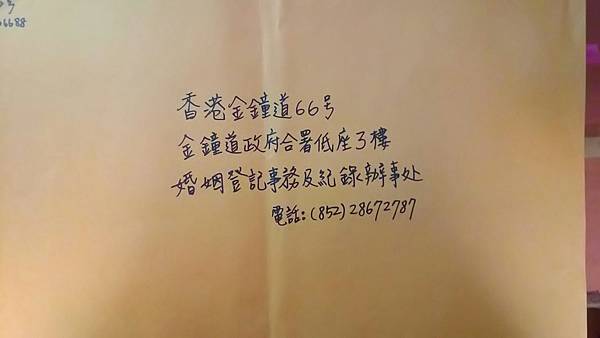 号
6688
香港金鐘道66号
金鐘道政府合署低座3樓
婚姻登記事務及紀錄辦事处
電話:(852)28672787